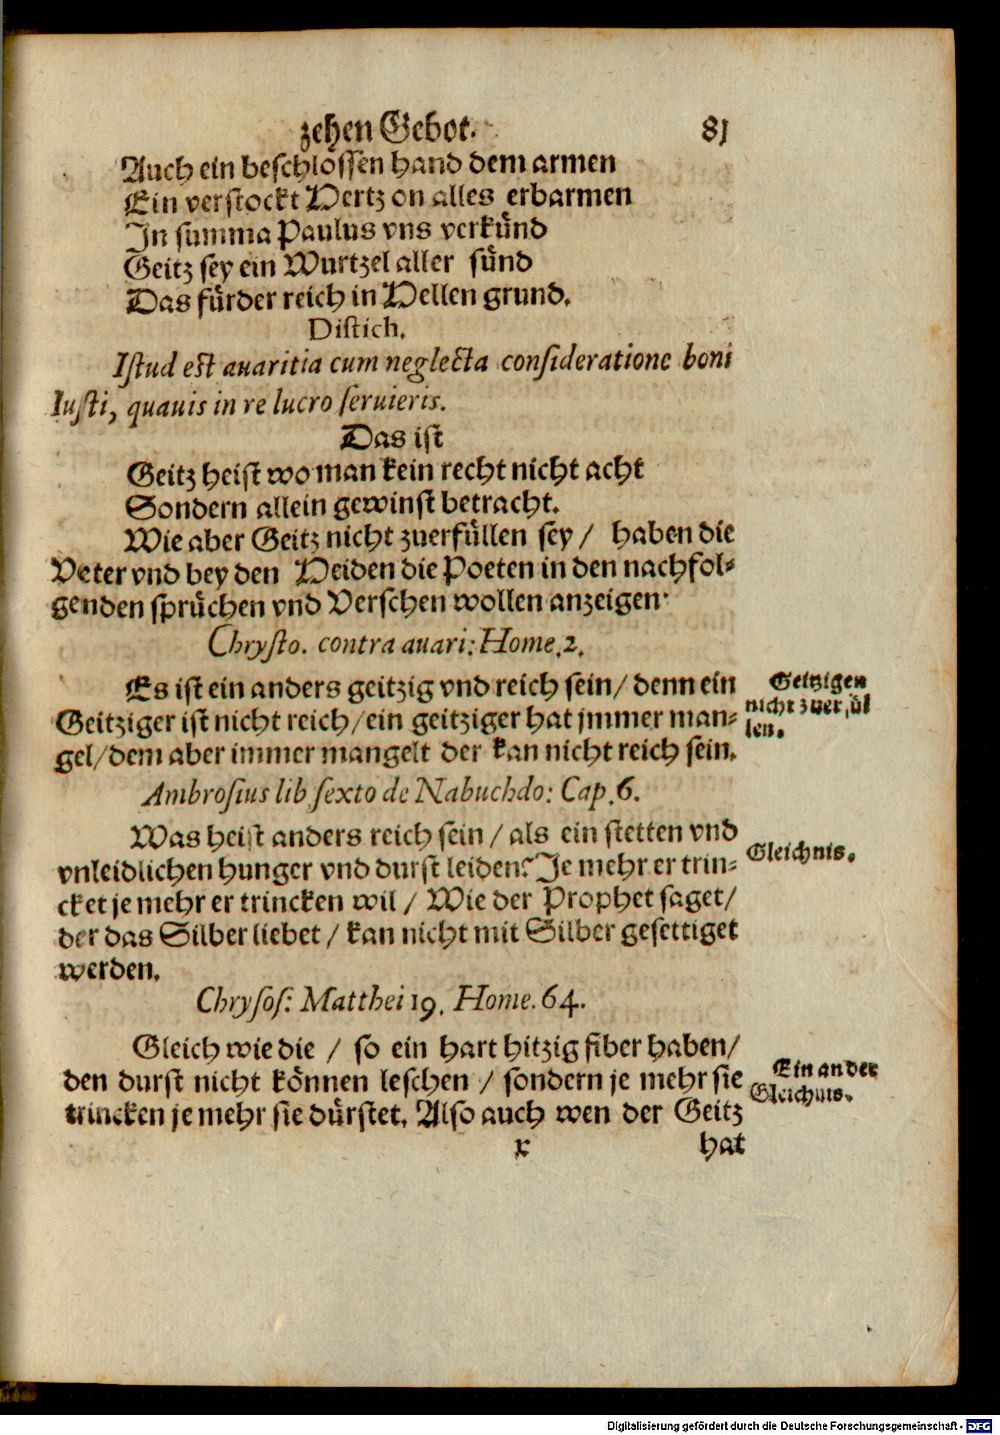 zehen Gebot. 81
Auch ein beschlossen hand dem armen
Ein verstockt Hertz on alles erbarmen
In summa Paulus vns verkünd
Geitz sey ein Wurtzel aller sünd
Das fürder reich in Hellen grund.
Distich.
Istud est auaritia cum neglecta consideratione boni
Iusti, quauis in re lucro seruieris.
Das ist
Geitz heist wo man kein recht nicht acht
Sondern allein gewinst betracht.
Wie aber Geitz nicht zuerfüllen sey / haben die
Veter vnd bey den Heiden die Poeten in den nachfol-
genden sprüchen vnd Verschen wollen anzeigen.
Chrysto. contra auari: Home.2.
Es ist ein anders geitzig vnd reich sein / denn ein
Geitziger ist nicht reich / ein geitziger hat jmmer man-
gel / dem aber immer mangelt der kan nicht reich sein.
Geitzigen
nicht zuerfül
len.
Ambrosius lib sexto de Nabuchdo: Cap.6.
Was heist anders reich sein / als ein stetten vnd
vnleidlichen hunger vnd durst leiden? Je mehr er trin-
cket je mehr er trincken wil / Wie der Prophet saget /
der das Silber liebet / kan nicht mit Silber gesettiget
werden.
Gleichnis.
Chrysos: Matthei 19. Home. 64.
Gleich wie die / so ein hart hitzig fiber haben /
den durst nicht können leschen / sondern je mehr sie
trincken je mehr sie dürstet. Also auch wen der Geitz
Ein ander
Gleichnis.
x hat
Digitalisierung gefördert durch die Deutsche Forschungsgemeinschaft - DFG